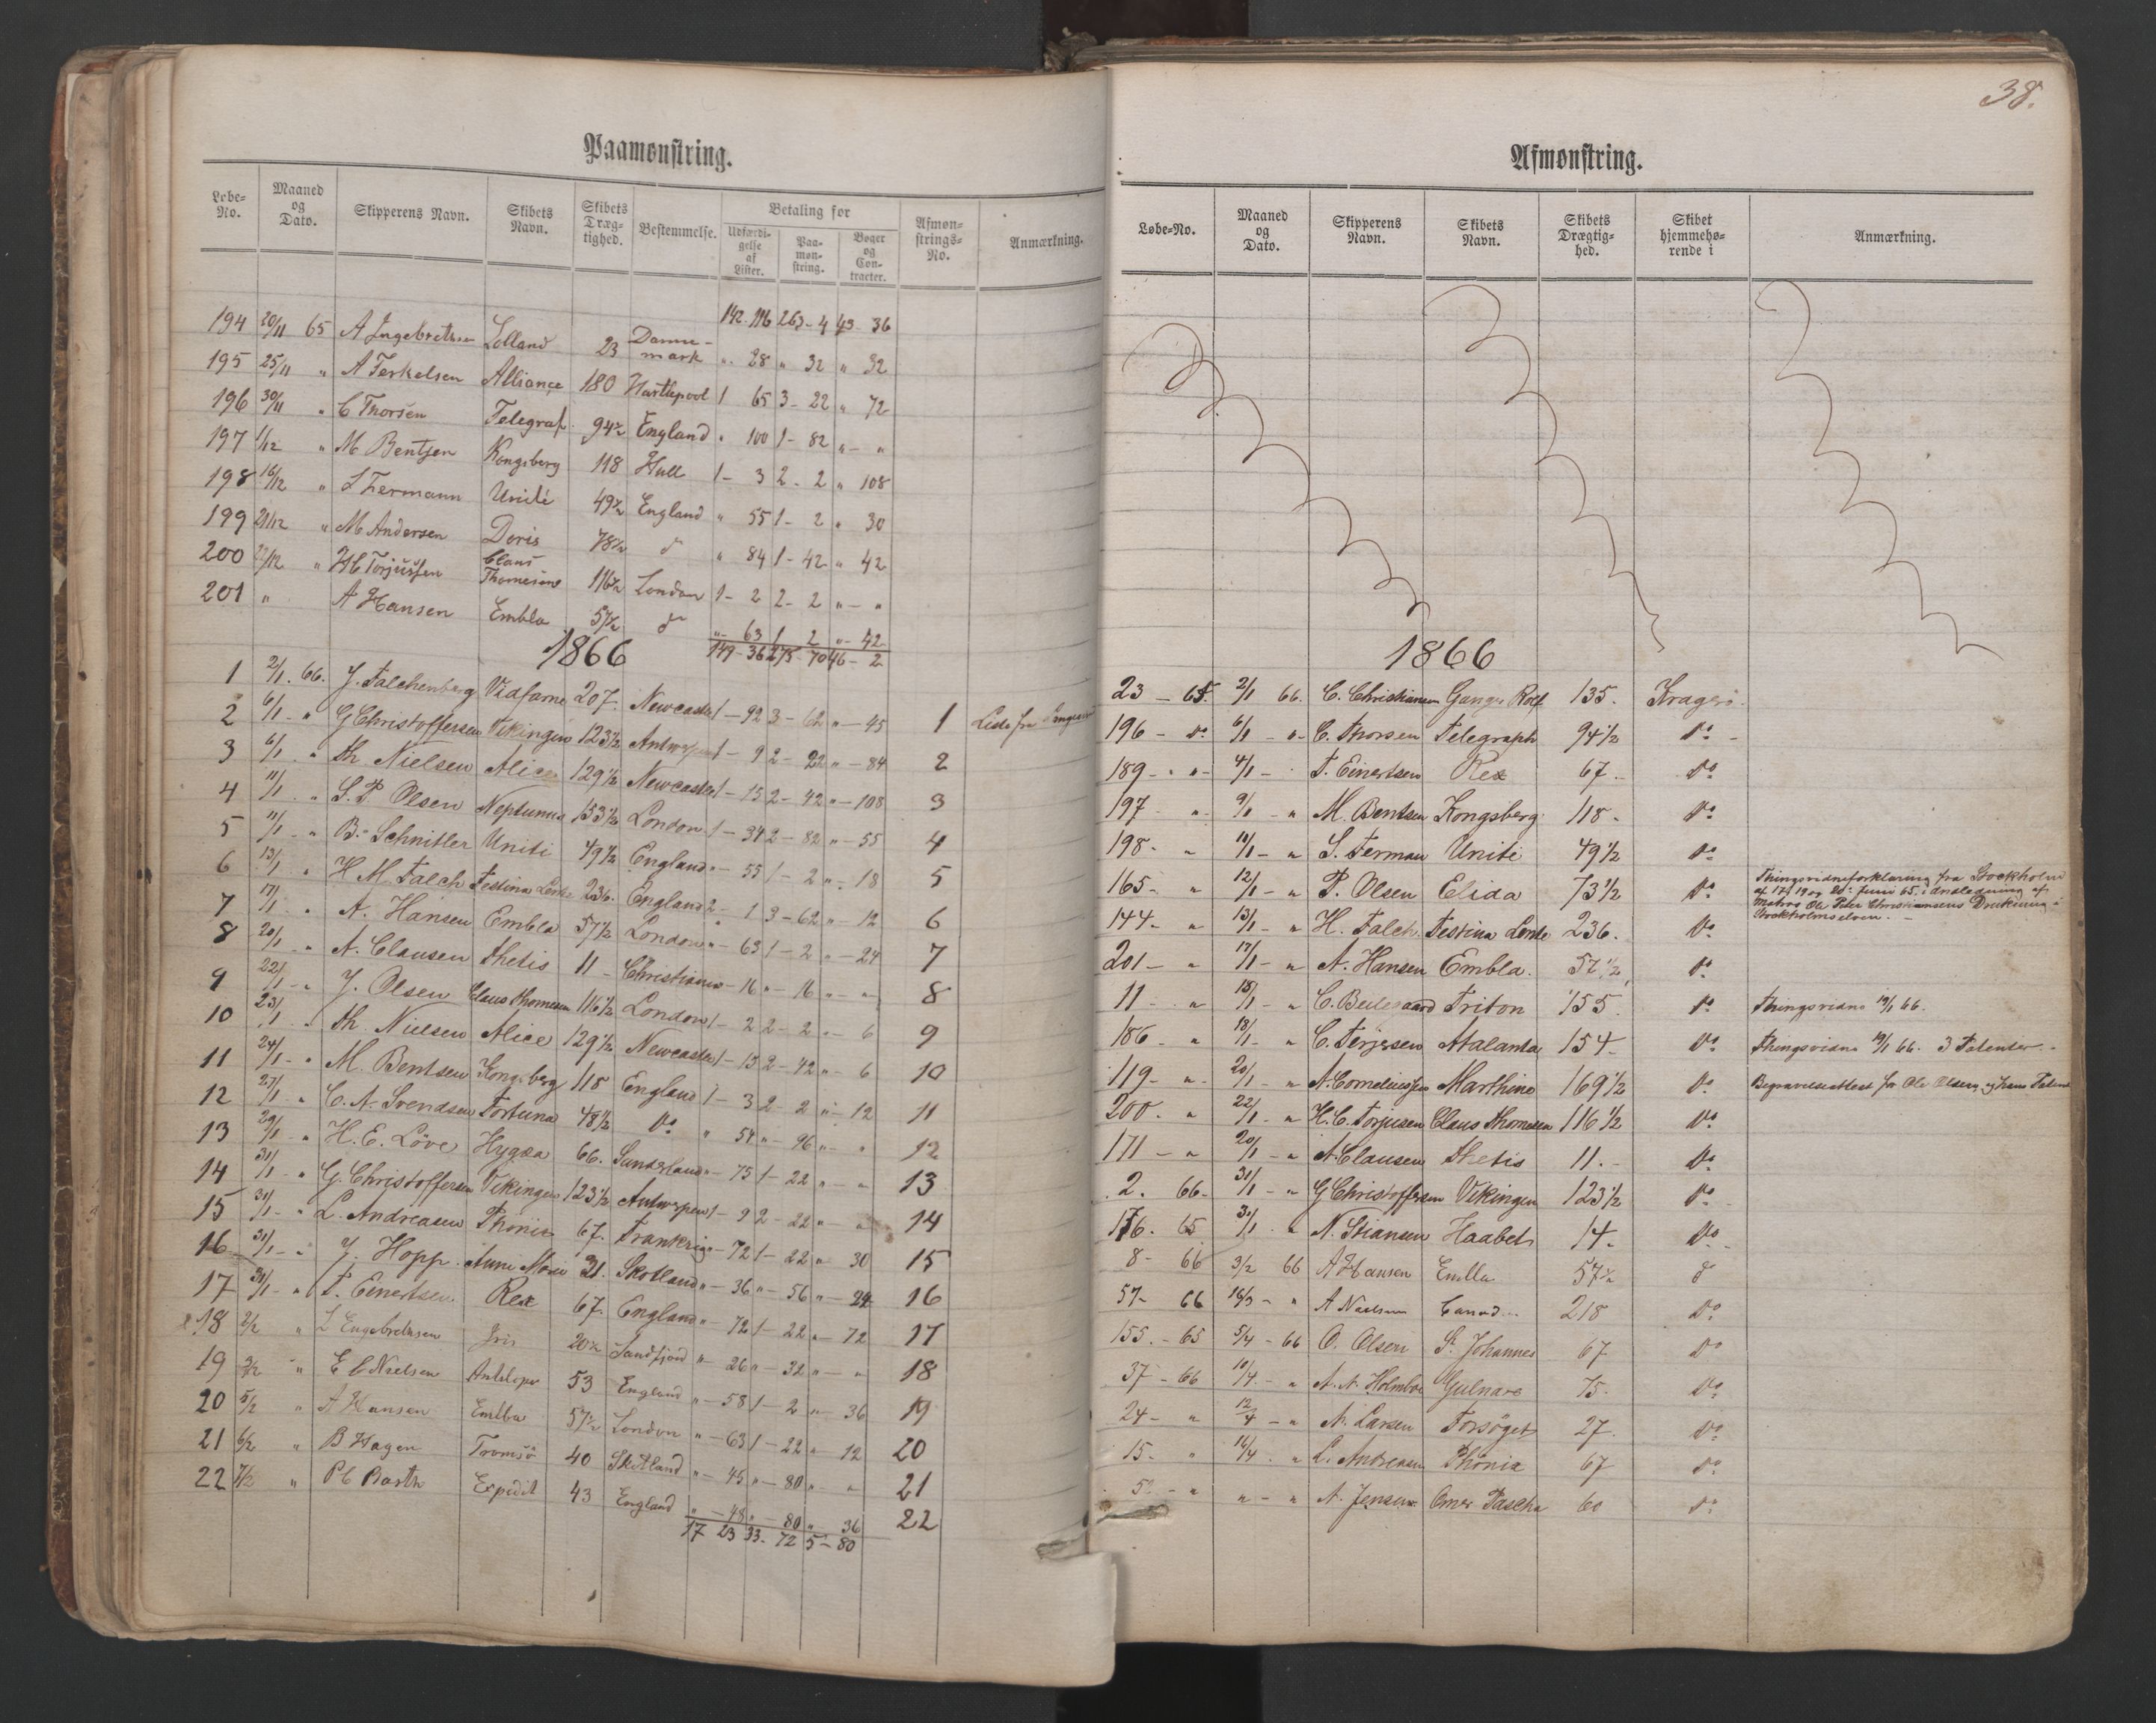 Paamønstring.
Løbe-No. Maaned og Dato. Skipperens Navn. Skibets Navn. Skibets Dræg-tighed. Bestemmelse. Betaling for Udfærdi-gelse af Lister. Paa-møn-string. Bøger og Con-tracter. Afmøn-strings-No. Anmærkning.
142. 116 263 - 4 43 - 36
194 20/11 65 A Ingebrethsen Lolland 23 Danne-mark " 28 " 32 " 32
195 25/11 " A Terkelsen Alliance 180 Hartlepool 1 65 3 - 22 " 72
196 30/11 " C Thorsen Telegraf 94½ England " 100 1 - 82 " - "
197 1/12 " M Bentzen Kongsberg 118 Hull 1 - 3 2 - 2 " 108
198 16/12 " S Fermann Unité 49½ England " 55 1 - 2 " 30
199 21/12 " M Andersen Doris 78½ do " 84 1 - 42 " 42
200 22/12 " HC Torjussen Claus Thomesen 116½ London 1 - 2 2 - 2 " - "
201 " A Hansen Embla 57½ do " - 63 1 2 " - 42
149 - 36 275 - 70 46 - 2
1866
1 2/1. 66. J. Falchenberg Vidfarne 207. Newcastle 1 - 92 3 - 62 " - 45 1 Liste fra
2 6/1 - " G Christoffersen Vikingen 123½ Antwerpen 1 - 9 2 - 22 " - 84 2
3 6/1 " Th. Nielsen Alice 129½ Newcastle 1 - 15 2 - 42 " - 108 3
4 11/1 " S. P Olsen Neptunus 153½ London 1 - 34 2 - 82 " - 55 4
5 11/1 - " B. Schnitler Uniti 49½ England " - 55 1 - 2 " - 18 5
6 13/1 " H M Falch Festina Lente 236. England 2 - 1 3 - 62 " - 12 6
7 17/1 " A. Hansen Embla 57½ London " - 63 1 - 2 " - 24 7
8 20/1 " A. Clausen Thetis 11 - Christiania " - 16 " - 16 " - " 8
9 22/1 - " J. Olsen Claus Thomesen 116½ London 1 - 2 2 - 2 " - 6 9
10 23/1 " Th. Nielsen Alice 129½ Newcastle 1 - 15 2 - 42 " - 6 10
11 24/1 - " M. Bentsen Kongsberg 118 England 1 - 3 2 - 2 " - 12 11
12 27/1 " C. A. Svendsen Fortuna 48½ Do " 54 " - 96 " - " 12
13 29/1 - " H. E. Löve Hygæa 66. Sunderland " - 75 1 - 22 " - " 13
14 31/1 - " G. Christoffersen Vikingen 123½ Antwerpen 1 - 9 2 - 22 " - " 14
15 31/1 - " L. Andreasen Phönix 67. Frankrig " - 72 1 - 22 " - 30 15
16 31/1 - " J. Hopp Anne Marie 31. Skotland " - 36 " - 56 " - 24 16
17 31/1 - " T. Einertsen Rex 67. England " - 72 1 - 22 " - 72 17
18 2/2 " L Engebrethsen Iris 20½ Sandfjord " - 26 " - 32 " - " 18
19 3/2 " E C Nielsen Antelope 53 England " - 58 1 - 2 " - 36 19
20 5/2 " A Hansen Embla 57½ London " - 63 1 - 22 " - 12 20
21 6/2 " B Hagen Tromsö 40 Skotland " - 45 " - 80 " " 21
22 7/2 " P C Barth Expedit 43 England " - 48 " - 80 " 36 22
17 23 33 - 72 5 - 80
38.
Afmønstring.
Løbe-No. Maaned og Dato. Skipperens Navn. Skibets Navn. Skibets Drægtig-hed. Skibet hjemmehø-rende i Anmærkning.
1866
23 - 65. 2/1 66. C. Christiansen Ganger Rolf 135. Kragerö.
196 - Do 6/1 - " - C. Thorsen Telegraph 94½ Do -
189 - " - 4/1 - T. Einertsen Rex 67 - Do
197 - " 9/1 - " M. Bentsen Kongsberg 118 - Do
198 - " 11/1 - " S. Ferman Uniti 49½ Do
165 - " 12/1 - " P. Olsen Elida 73½ Do Thingsvidneforklaring fra Stockholm
af 17, 19 og 20 Juni 65. i Anledning af
Matros Ole Peter Christiansens Drukning i
Stockholmselven. -
144 - " 13/1 - " H. Falch Festina Lente 236. Do
201 - " 17/1 - " A. Hansen Embla. 57½ Do
11 - " 18/1 - " C. Beilegaard Triton 155. Do Thingsvidne 19/1 66.
186 - " 18/1 - " C. Terjesen Atalanta 154 - Do Thingsvidne 19/1 66. 3 Patenter. -
119 - " 20/1 - " A. Corneliussen Marthine 169½ Do Begravelsesattest for Ole Olsen og hans Patent
200. " 22/1 - " H. C. Torjusen Claus Thomesen 116½ Do
171 - " 20/1 - " A Clausen Thetis 11. - Do
2. 66 - 31/1 - " G Christoffersen Vikingen 123½ Do
176. 65 31/1 " N. Stiansen Haabet 14 - Do -
8 - 66 3/2 66 A Hansen Embla 57½ do
57 - 66 16/3 - " A Nielsen 218 Do
155. - 65 5/4 - 66 O. Olsen St Johannes 67 Do
37 - 66 10/4 - " A. N. Holmboe Gulnare 75. Do
24 - " 12/4 - " N. Larsen Forsöget 27. Do
15. " 14/4 - " L. Andreasen Phönix 67 Do
5 - " " - " A. Jensen Omer Pascha 60 Do